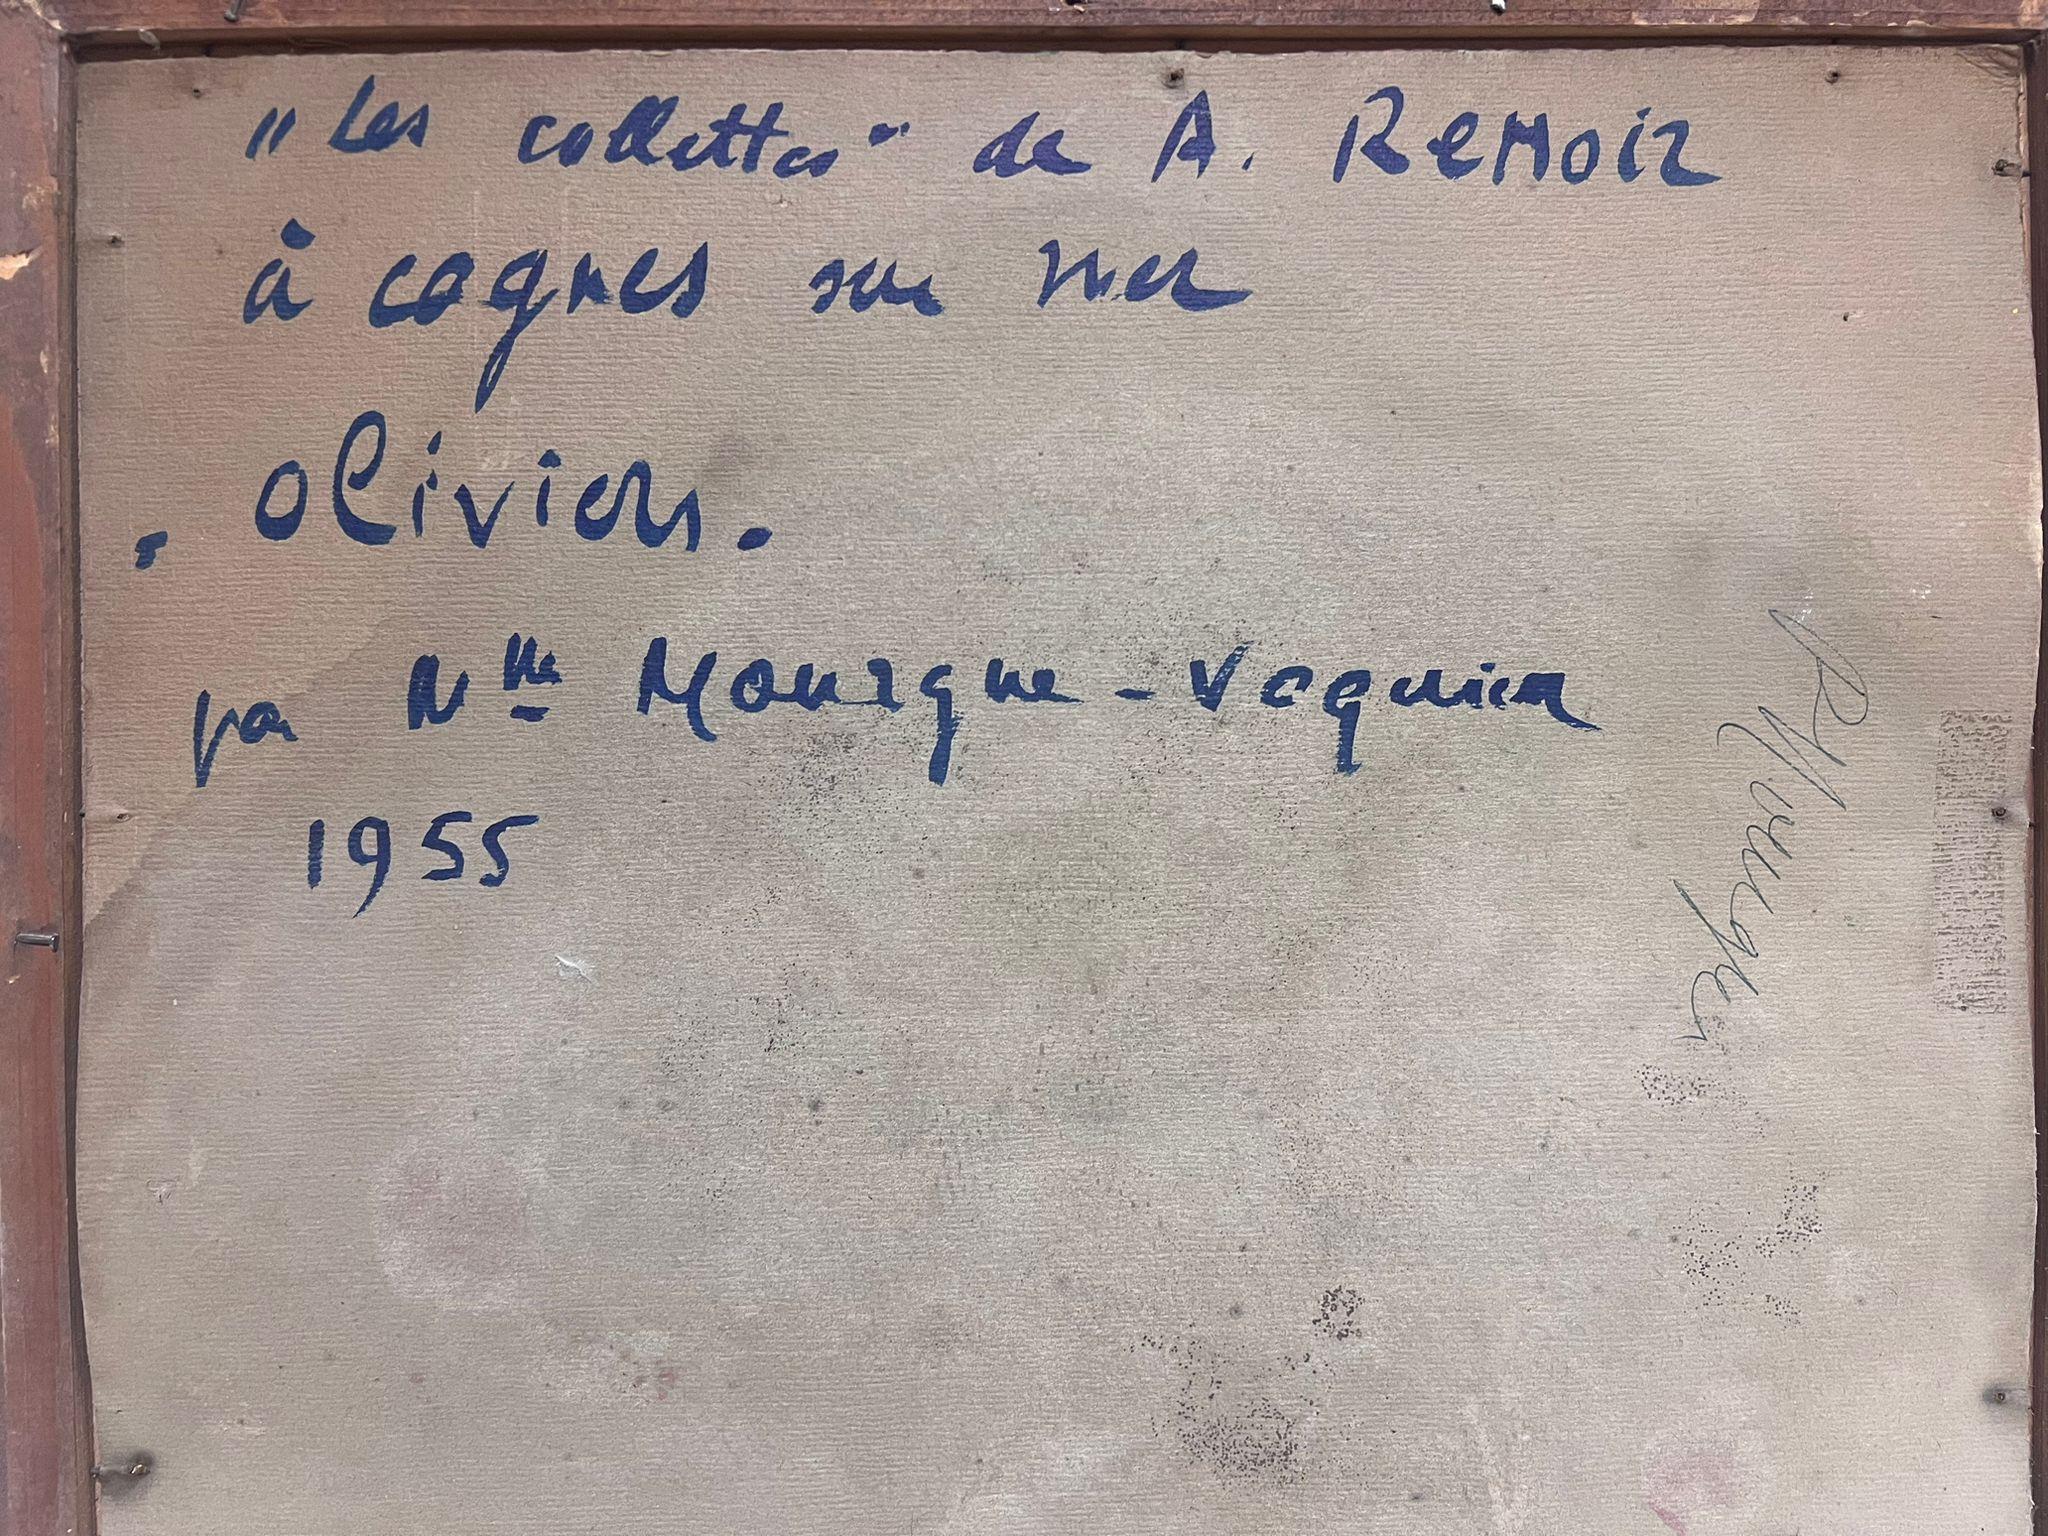 "Les collettes" de A. Renoir
à cagnes sur mer
. oliviers.
par Mlle Mourgue - Vequier
1955